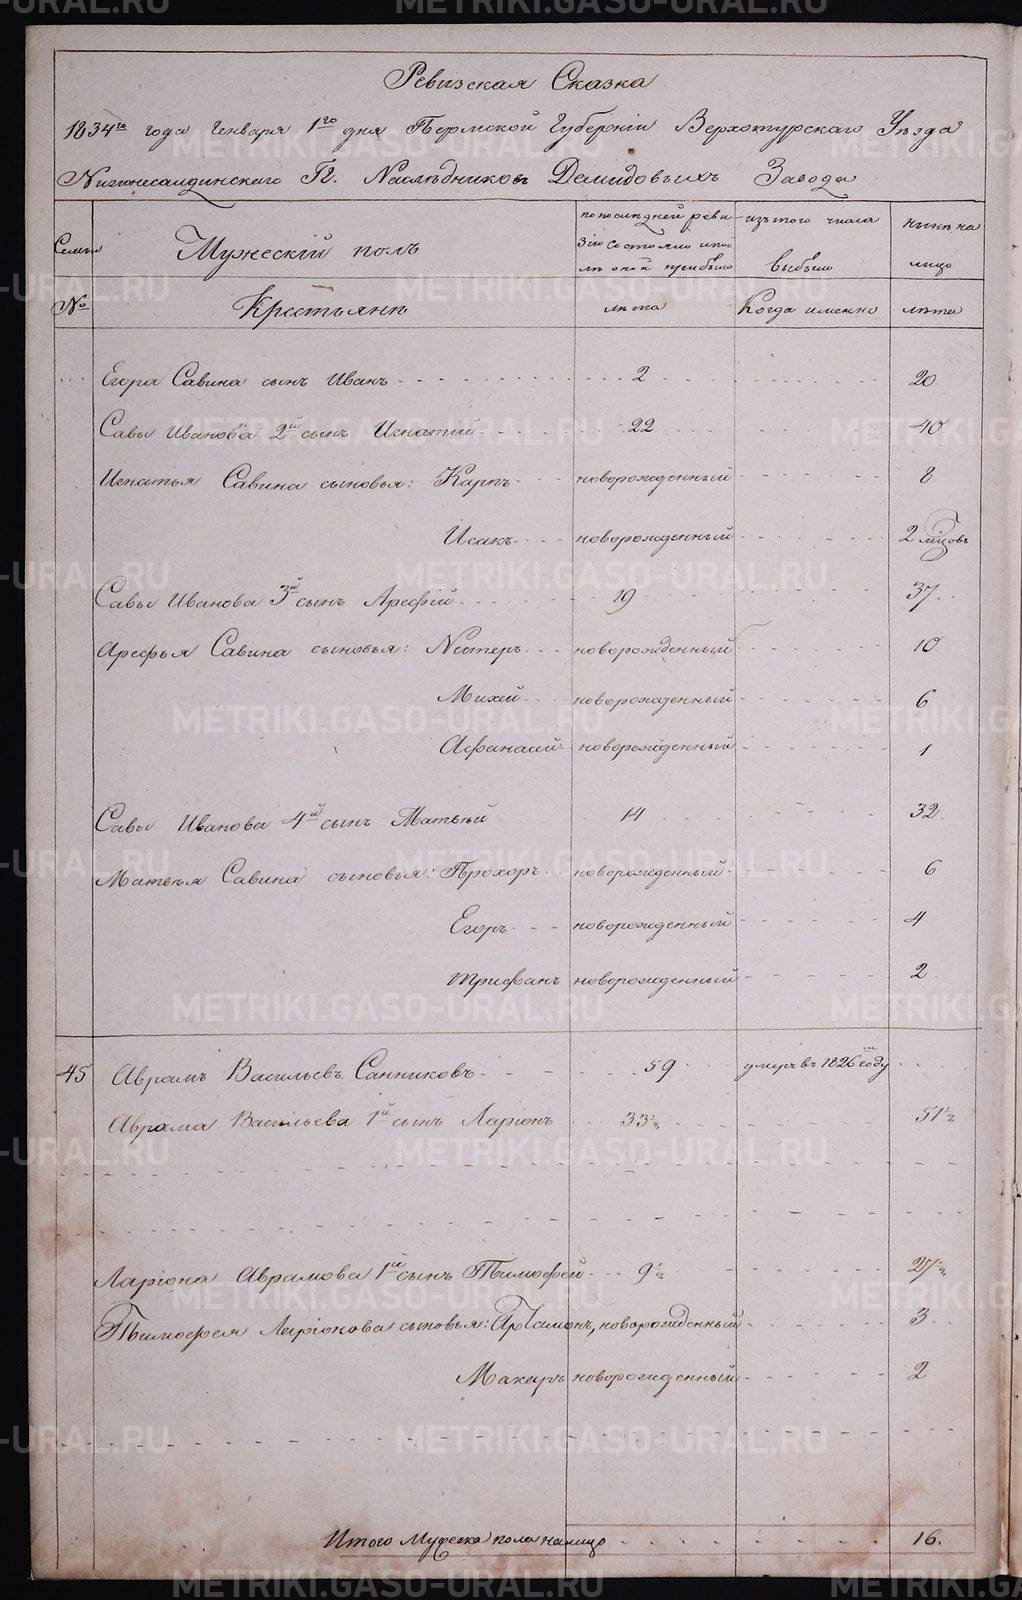 Ревизская Сказка
1834го года Генваря 1го дня Пермской Губернiи Верхотурскаго Уѣзда
Нижнесалдинскаго Гг. Наслѣдниковъ Демидовыхъ Завода
Семьи Мужескiй полъ по последней ревизiи состояло и после оной прибыло изъ того числа выбыло нынѣ на лицо
№ Крестьянъ лѣта Когда именно лѣта
Егора Савина сынъ Иванъ 2 20
Савы Иванова 2й сынъ Игнатiй 22 40
Игнатья Савина сыновья: Карпъ новорожденный 8
Исакъ новорожденный 2 мѣсцовъ
Савы Иванова 3й сынъ Арефiй 19 37
Арефья Савина сыновья: Нестеръ новорожденный 10
Михей новорожденный 6
Афанасiй новорожденный 1
Савы Иванова 4й сынъ Матвѣй 14 32
Матвѣя Савина сыновья: Прохоръ новорожденный 6
Егоръ новорожденный 4
Трифанъ новорожденный 2
45 Аврамъ Васильевъ Санниковъ 59 умеръ въ 1826м году
Аврама Васильева 1й сынъ Ларiонъ 33½ 51½
Ларiона Аврамова 1й сынъ Тимофей 9½ 27½
Тимофея Ларiонова сыновья: Артамонъ, новорожденный 3
Макаръ новорожденный 2
Итого Мужеска пола налицо 16.
METRIKI.GASO-URAL.RU